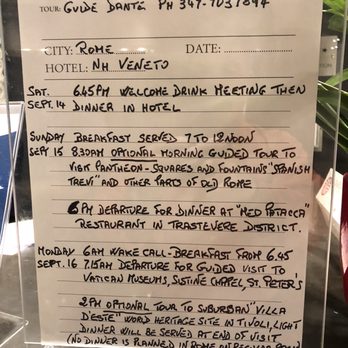 TOUR: GUIDE DANTE PH 347-7037894
CITY: ROME DATE:
HOTEL: NH VENETO
SAT. 6.45PM WELCOME DRINK MEETING THEN
SEPT. 14 DINNER IN HOTEL
SUNDAY BREAKFAST SERVED 7 TO 12NOON
SEPT 15 8.30AM OPTIONAL MORNING GUIDED TOUR TO
VISIT PANTHEON - SQUARES AND FOUNTAINS "SPANISH
TREVI" AND OTHER PARTS OF OLD ROME
6PM DEPARTURE FOR DINNER AT "MEO PATACCA"
RESTAURANT IN TRASTEVERE DISTRICT.
MONDAY 6AM WAKE CALL - BREAKFAST FROM 6.45
SEPT. 16 7.15AM DEPARTURE FOR GUIDED VISIT TO
VATICAN MUSEUMS, SISTINE CHAPEL, ST. PETER'S
2PM OPTIONAL TOUR TO SUBURBAN "VILLA
D'ESTE" WORLD HERITAGE SITE IN TIVOLI, LIGHT
DINNER WILL BE SERVED AT END OF VISIT
(NO DINNER IS PLANNED IN ROME ON